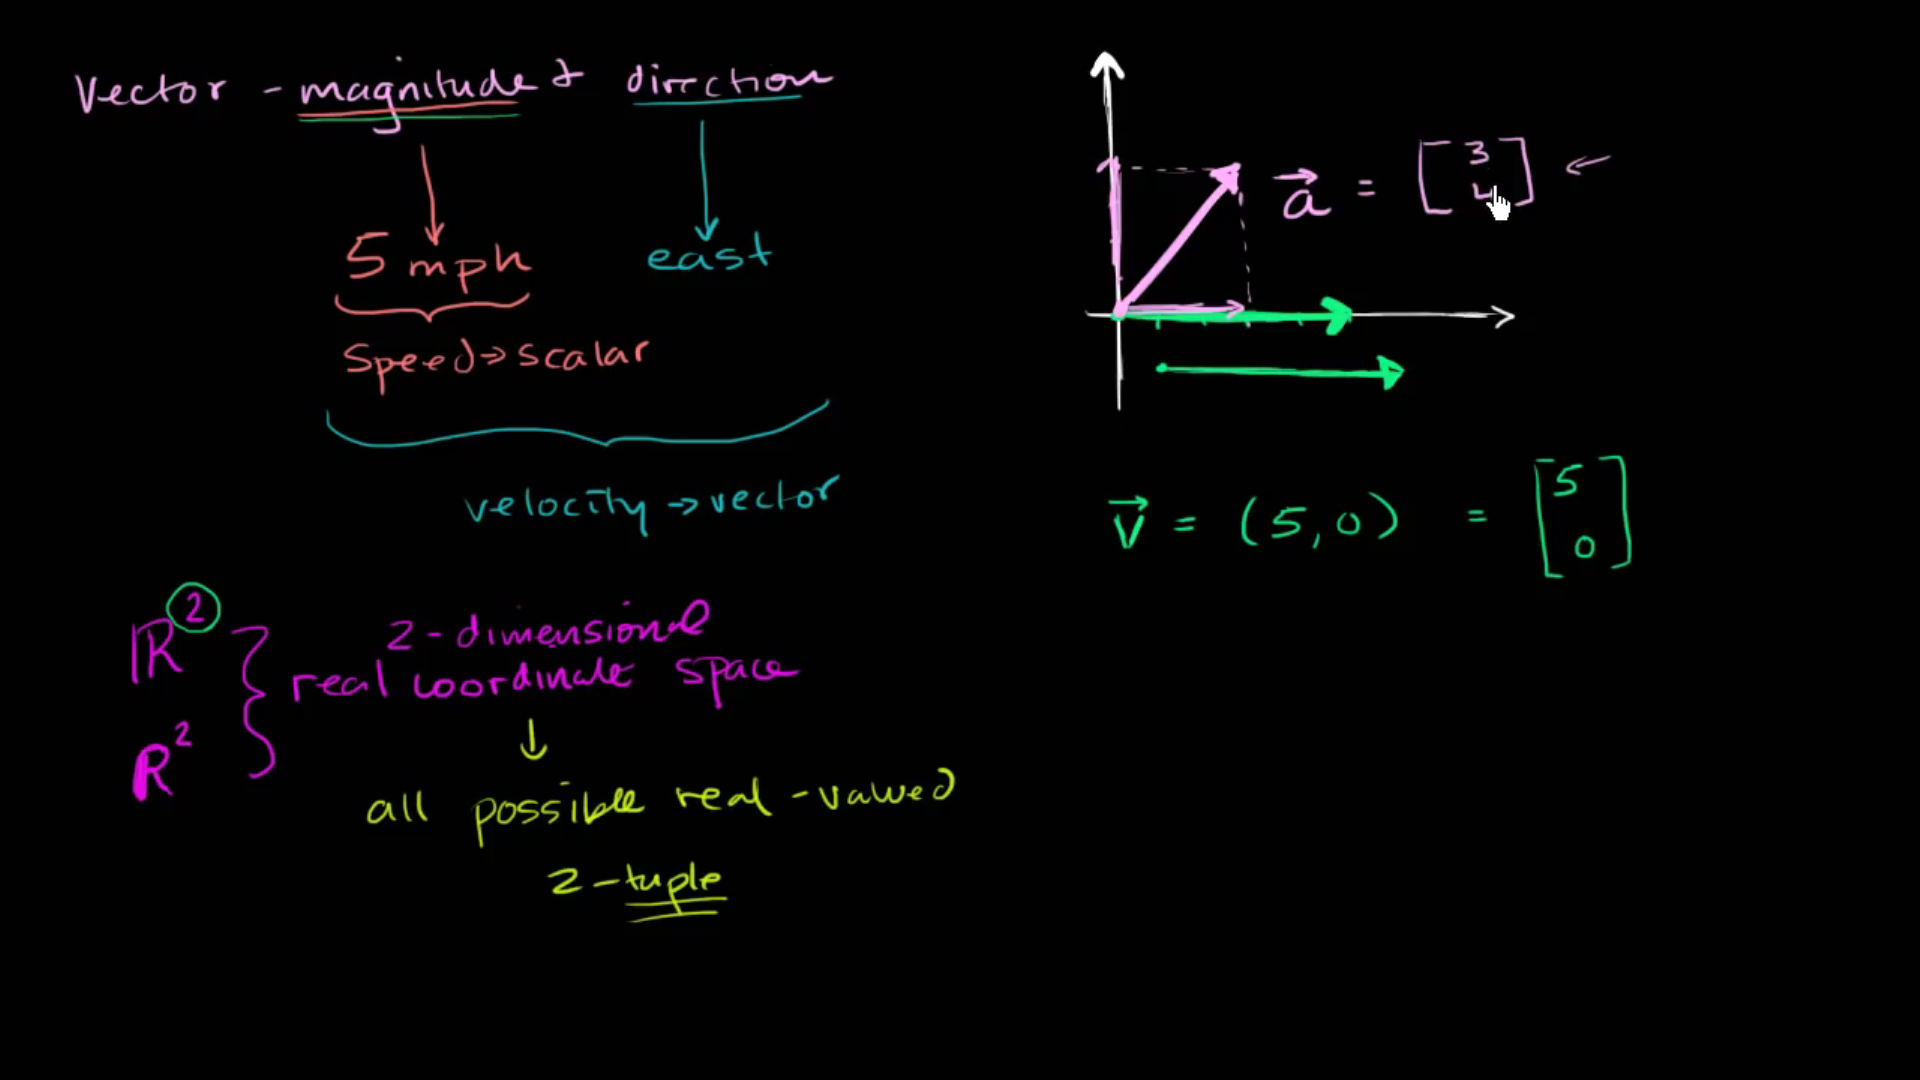 Vector - magnitude & direction
5 mph
east
Speed → scalar
velocity → vector
ℝ² 
2-dimensional
real coordinate space
R²
↓
all possible real-valued
2-tuple
a⃗ = [3
4] ←
v⃗ = (5, 0) = [5
0]